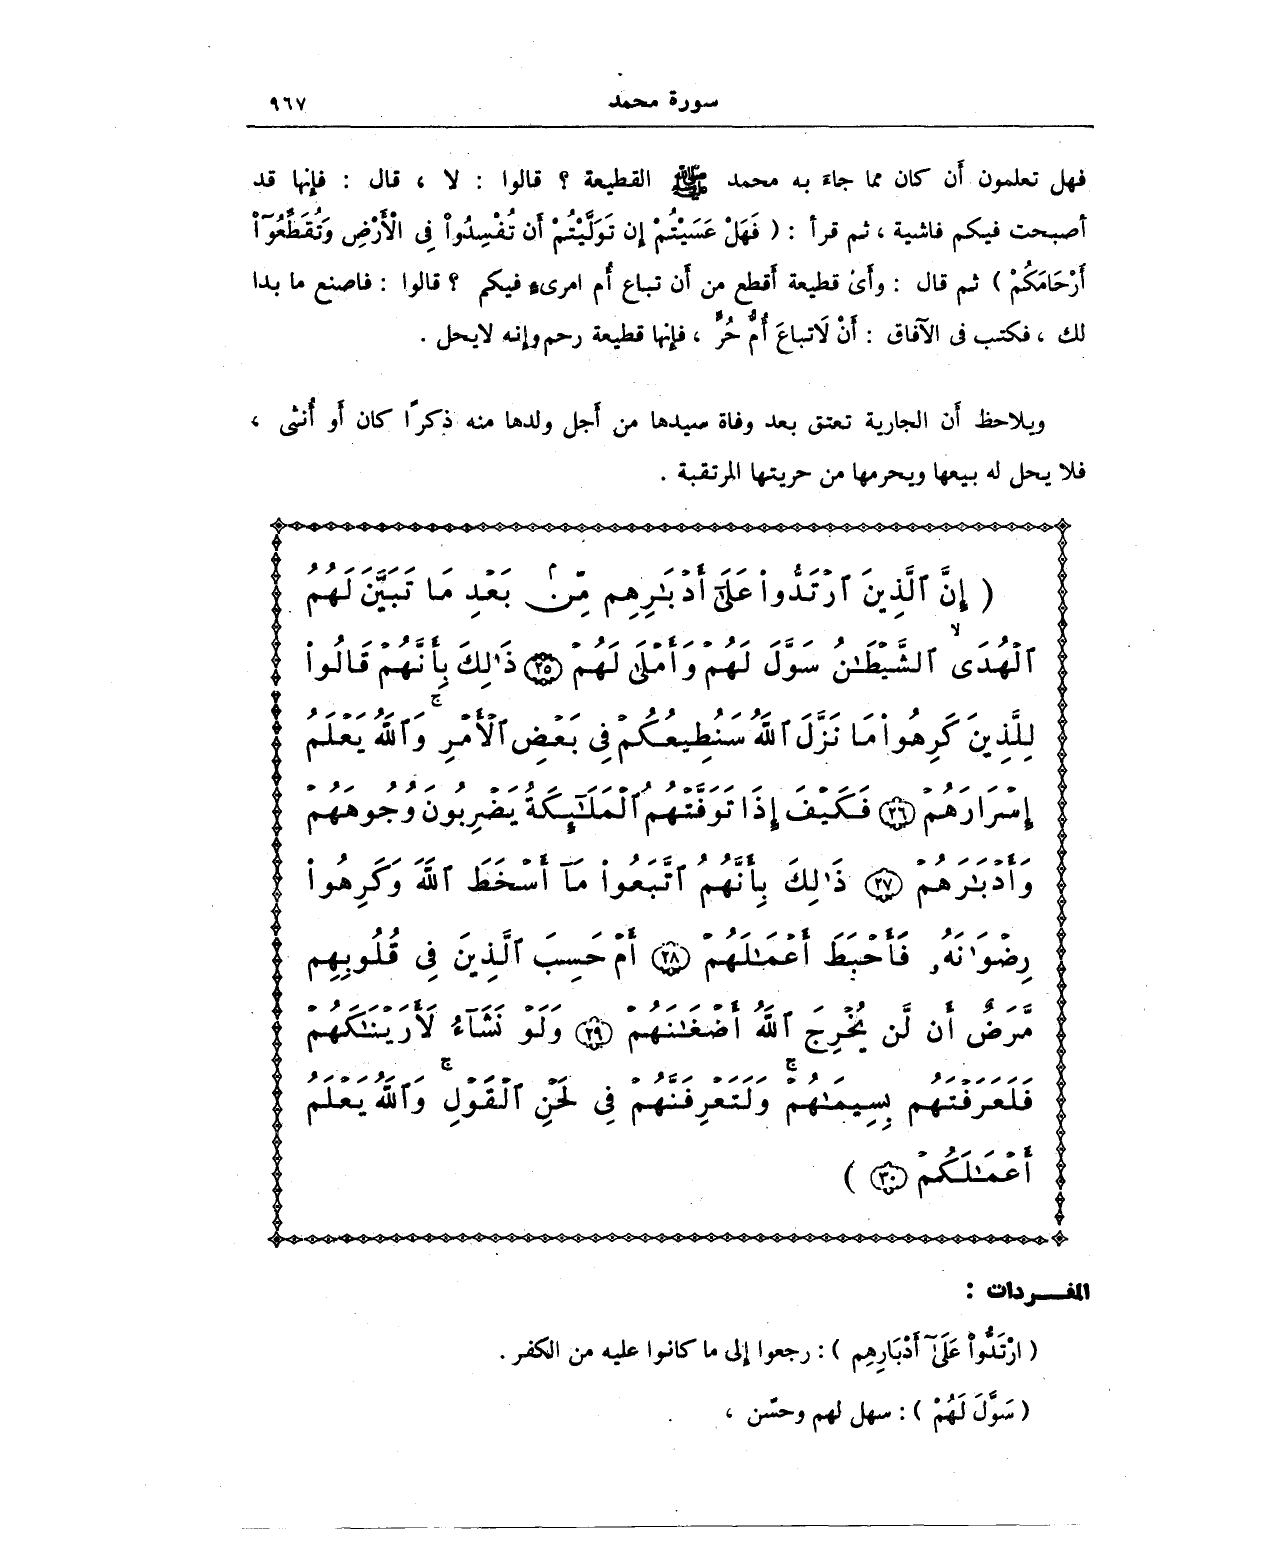 سورة محمد ٩٦٧
فهل تعلمون أَن كان مما جاءَ به محمد ﷺ القطيعة ؟ قالوا : لا ، قال : فإنها قد
أصبحت فيكم فاشية ، ثم قرأ : ( فَهَلْ عَسَيْتُمْ إِن تَوَلَّيْتُمْ أَن تُفْسِدُواْ فِى الْأَرْضِ وَتُقَطِّعُوٓاْ
أَرْحَامَكُمْ ) ثم قال : وأَىْ قطيعة أقطع من أن تباع أُم امرىءٍ فيكم ؟ قالوا : فاصنع ما بدا
لك ، فكتب فى الآفاق : أَنْ لَاتباعَ أُمُّ حُرٍّ ، فإنها قطيعة رحم وإنه لايحل .
ويلاحظ أَن الجارية تعتق بعد وفاة سيدها من أَجل ولدها منه ذكرًا كان أَو أُنثى ،
فلا يحل له بيعها ويحرمها من حريتها المرتقبة .
( إِنَّ ٱلَّذِينَ ٱرْتَدُّواْ عَلَىٰٓ أَدْبَـٰرِهِم مِّنۢ بَعْدِ مَا تَبَيَّنَ لَهُمُ
ٱلْهُدَى ۙ ٱلشَّيْطَـٰنُ سَوَّلَ لَهُمْ وَأَمْلَىٰ لَهُمْ ﴿٢٥﴾ ذَٰلِكَ بِأَنَّهُمْ قَالُواْ
لِلَّذِينَ كَرِهُواْ مَا نَزَّلَ ٱللَّهُ سَنُطِيعُكُمْ فِى بَعْضِ ٱلْأَمْرِ ۚ وَٱللَّهُ يَعْلَمُ
إِسْرَارَهُمْ ﴿٢٦﴾ فَكَيْفَ إِذَا تَوَفَّتْهُمُ ٱلْمَلَـٰٓئِكَةُ يَضْرِبُونَ وُجُوهَهُمْ
وَأَدْبَـٰرَهُمْ ﴿٢٧﴾ ذَٰلِكَ بِأَنَّهُمُ ٱتَّبَعُواْ مَآ أَسْخَطَ ٱللَّهَ وَكَرِهُواْ
رِضْوَٰنَهُۥ فَأَحْبَطَ أَعْمَـٰلَهُمْ ﴿٢٨﴾ أَمْ حَسِبَ ٱلَّذِينَ فِى قُلُوبِهِم
مَّرَضٌ أَن لَّن يُخْرِجَ ٱللَّهُ أَضْغَـٰنَهُمْ ﴿٢٩﴾ وَلَوْ نَشَآءُ لَأَرَيْنَـٰكَهُمْ
فَلَعَرَفْتَهُم بِسِيمَـٰهُمْ ۚ وَلَتَعْرِفَنَّهُمْ فِى لَحْنِ ٱلْقَوْلِ ۚ وَٱللَّهُ يَعْلَمُ
أَعْمَـٰلَكُمْ ﴿٣٠﴾ )
المفـــردات :
( ارْتَدُّواْ عَلَىٰٓ أَدْبَارِهِم ) : رجعوا إلى ما كانوا عليه من الكفر .
( سَوَّلَ لَهُمْ ) : سهل لهم وحسّن ،